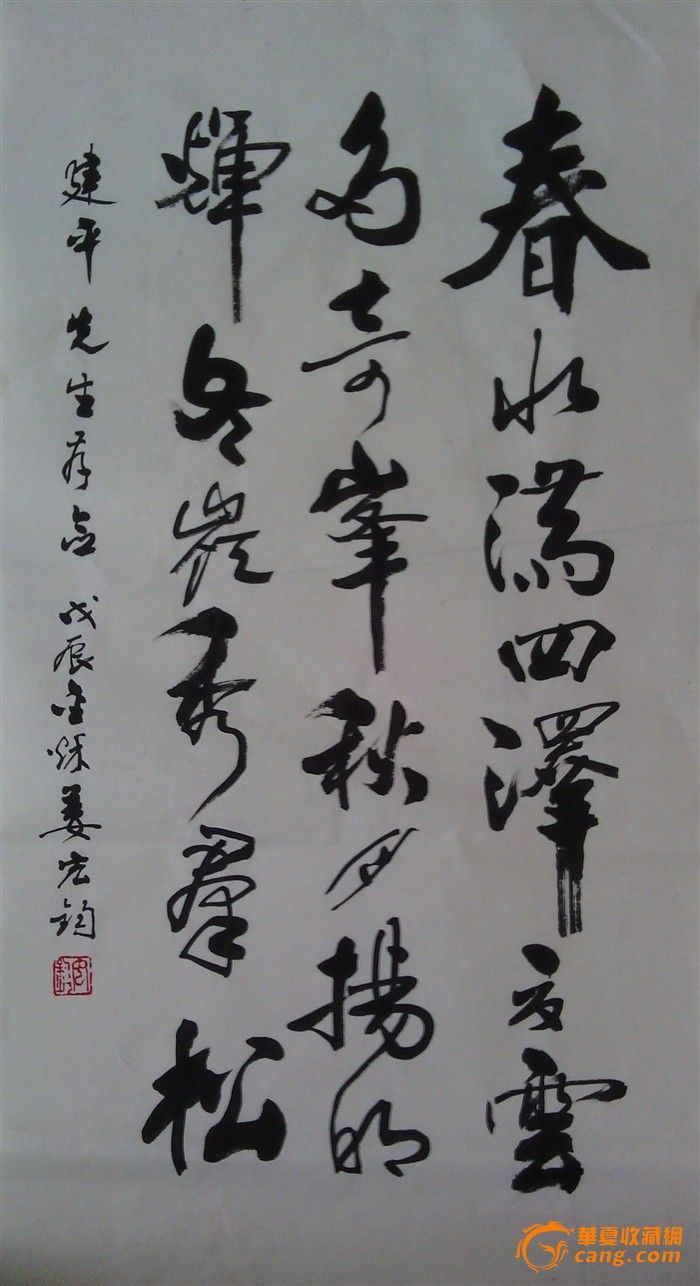 春水滿四澤夏雲
多奇峯秋月揚明
輝冬嶺秀羣松
建平先生存念 戊辰金秋姜宏鈞
華夏收藏網
cang.com